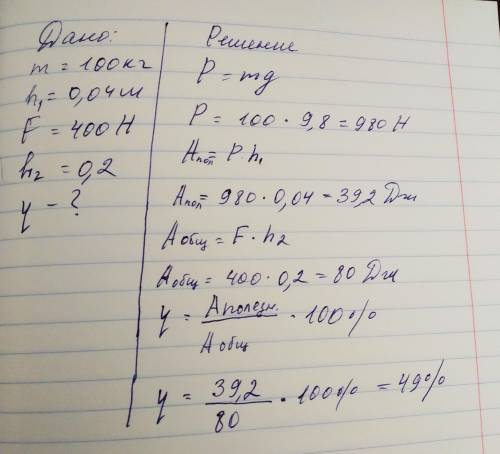 Дано:
m = 100кг
h₁ = 0,04м
F = 400 Н
h₂ = 0,2
η - ?
Решение
P = mg
P = 100 · 9,8 = 980 Н
Aпол = P · h₁
Aпол = 980 · 0,04 = 39,2 Дж
Aобщ = F · h₂
Aобщ = 400 · 0,2 = 80 Дж
η = Aполезн. / Aобщ · 100%
η = 39,2 / 80 · 100% = 49%